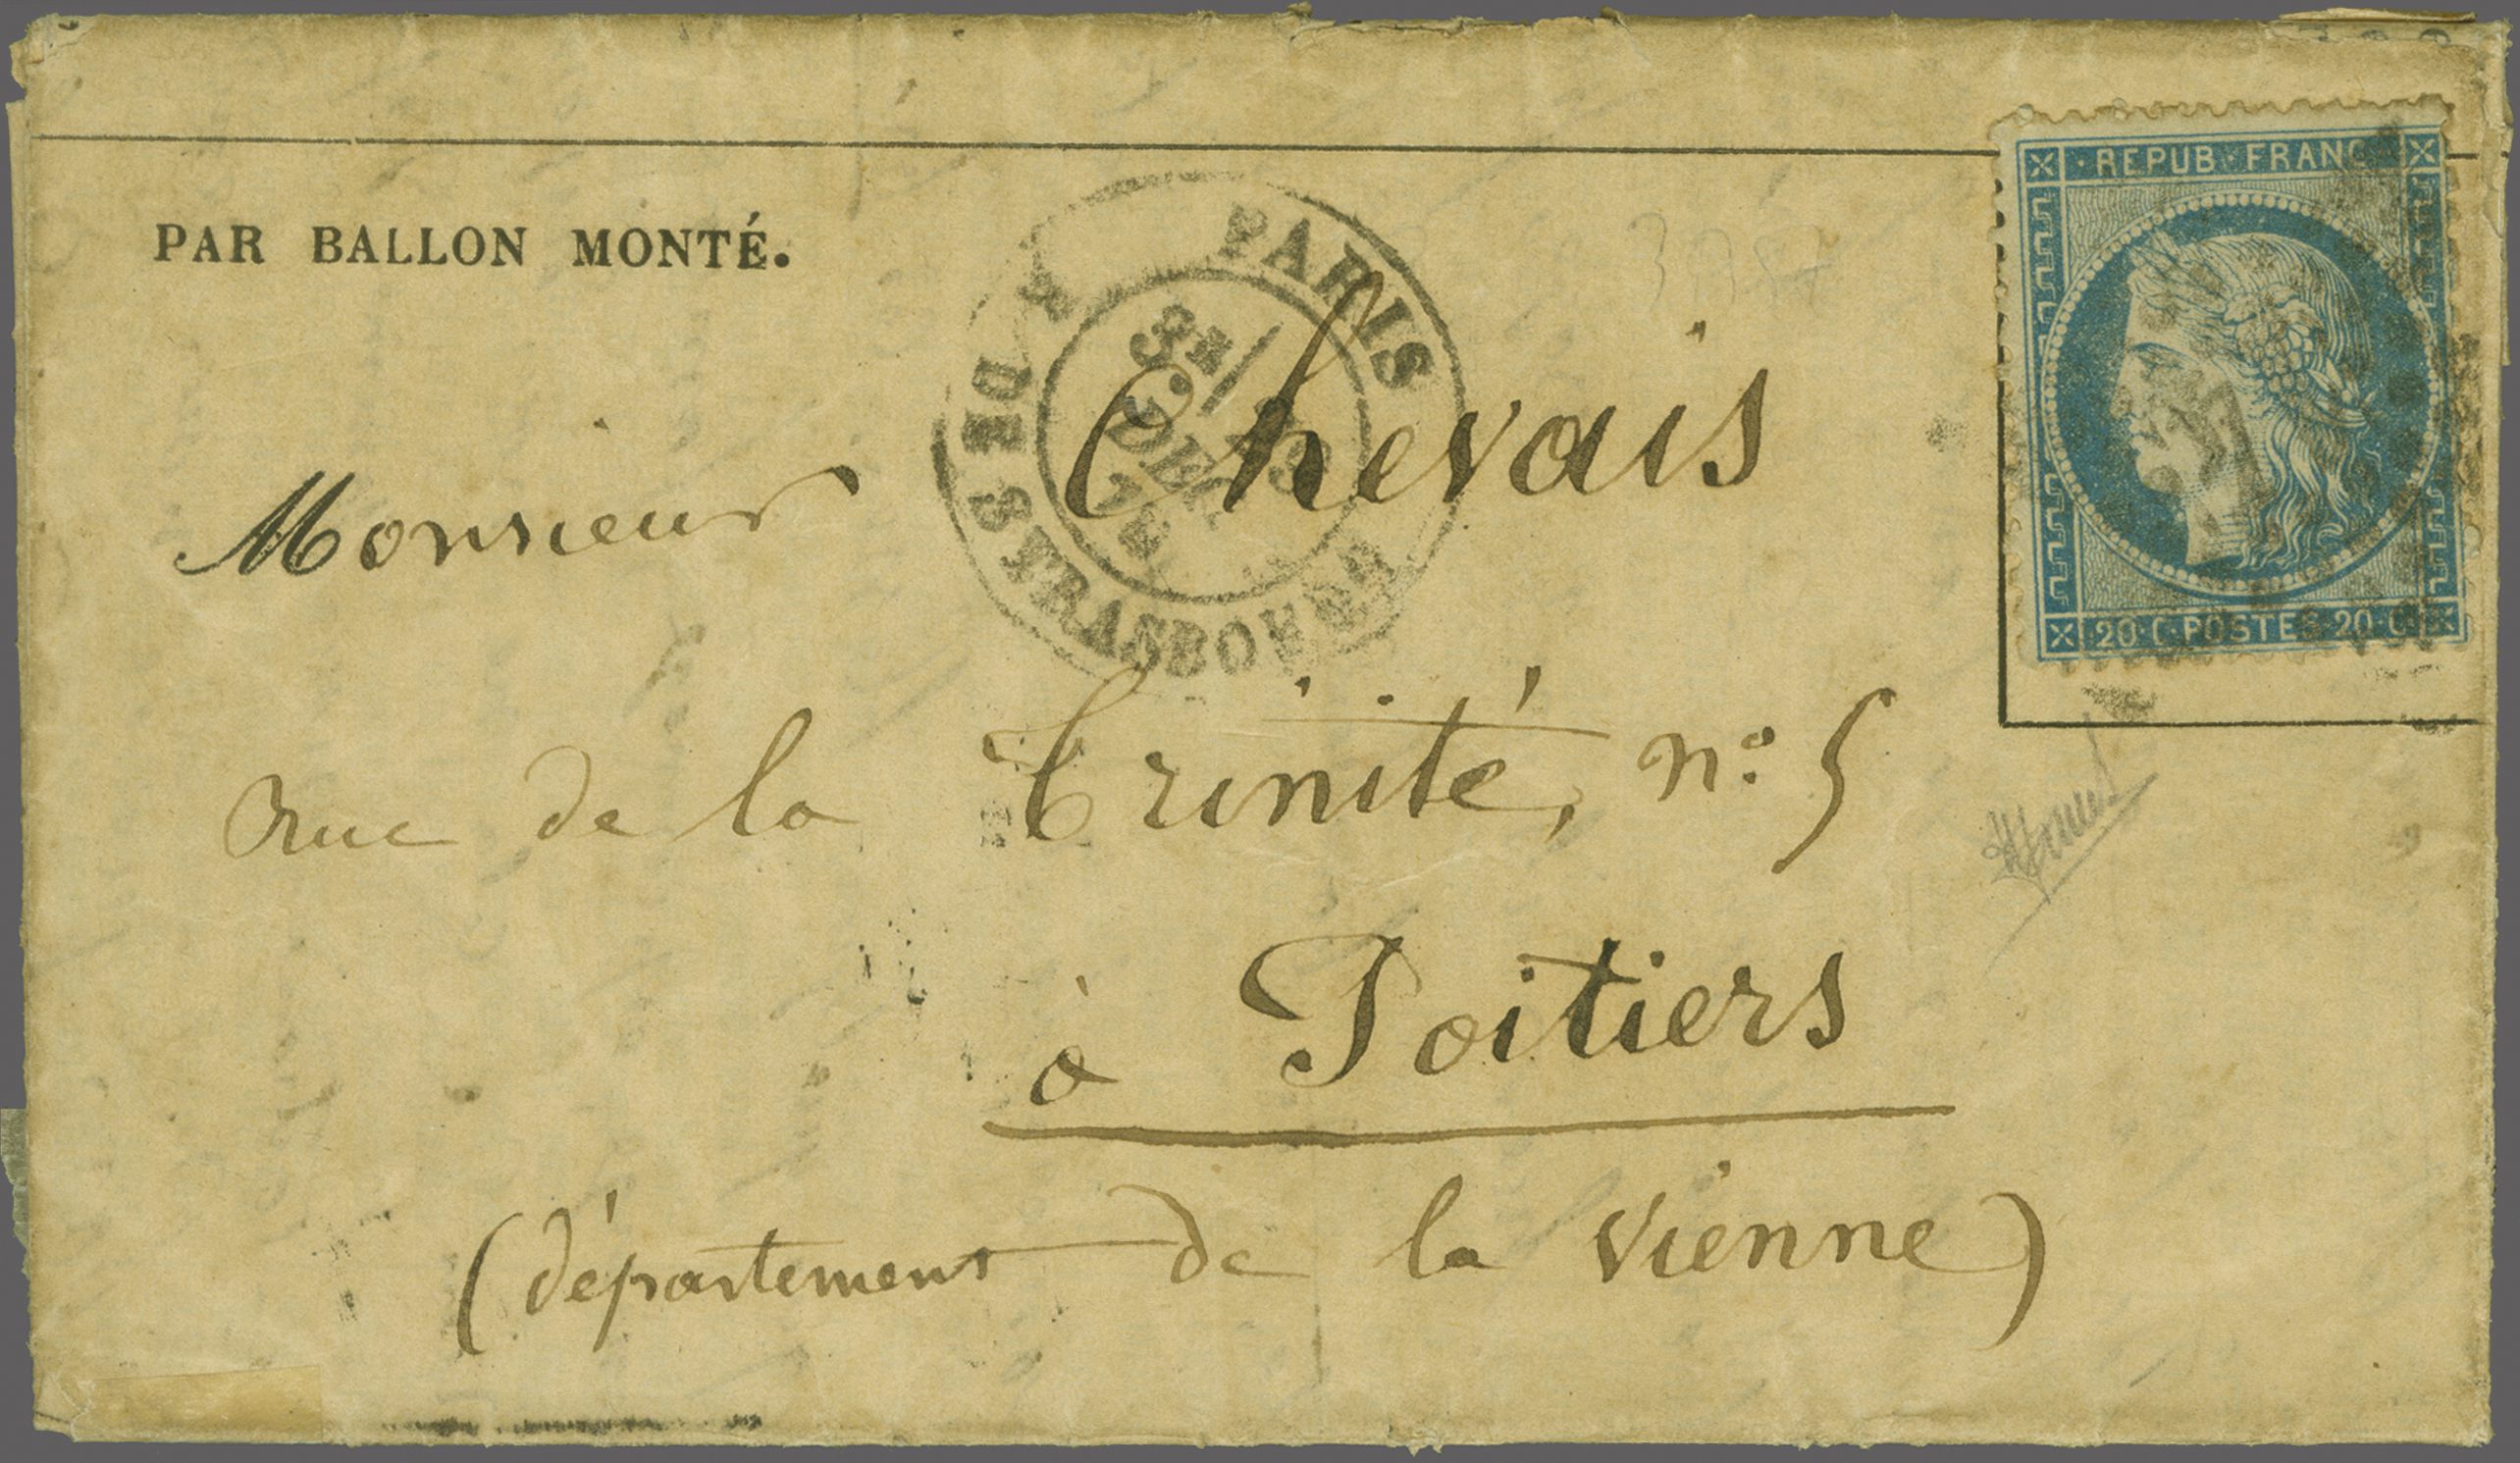 PAR BALLON MONTÉ.
REPUB FRANC
20·C·POSTES·20·C
PARIS
R. DE STRASBOURG
3E/ DEC.
Monsieur Chevais
rue de la Trinité, n° 5
à Poitiers
(département de la Vienne)